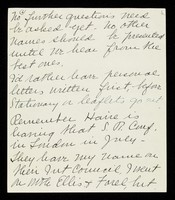 No further questions need
be asked yet. No other
names should be presented
until we hear from the
best ones.
I'd rather have personal
letters written first, before
Stationary or leaflets go out.
Remember Haire is
having that S. R. Conf.
in London in July—
They have my name on
their Int Council. I went
on with Ellis & Forel, but